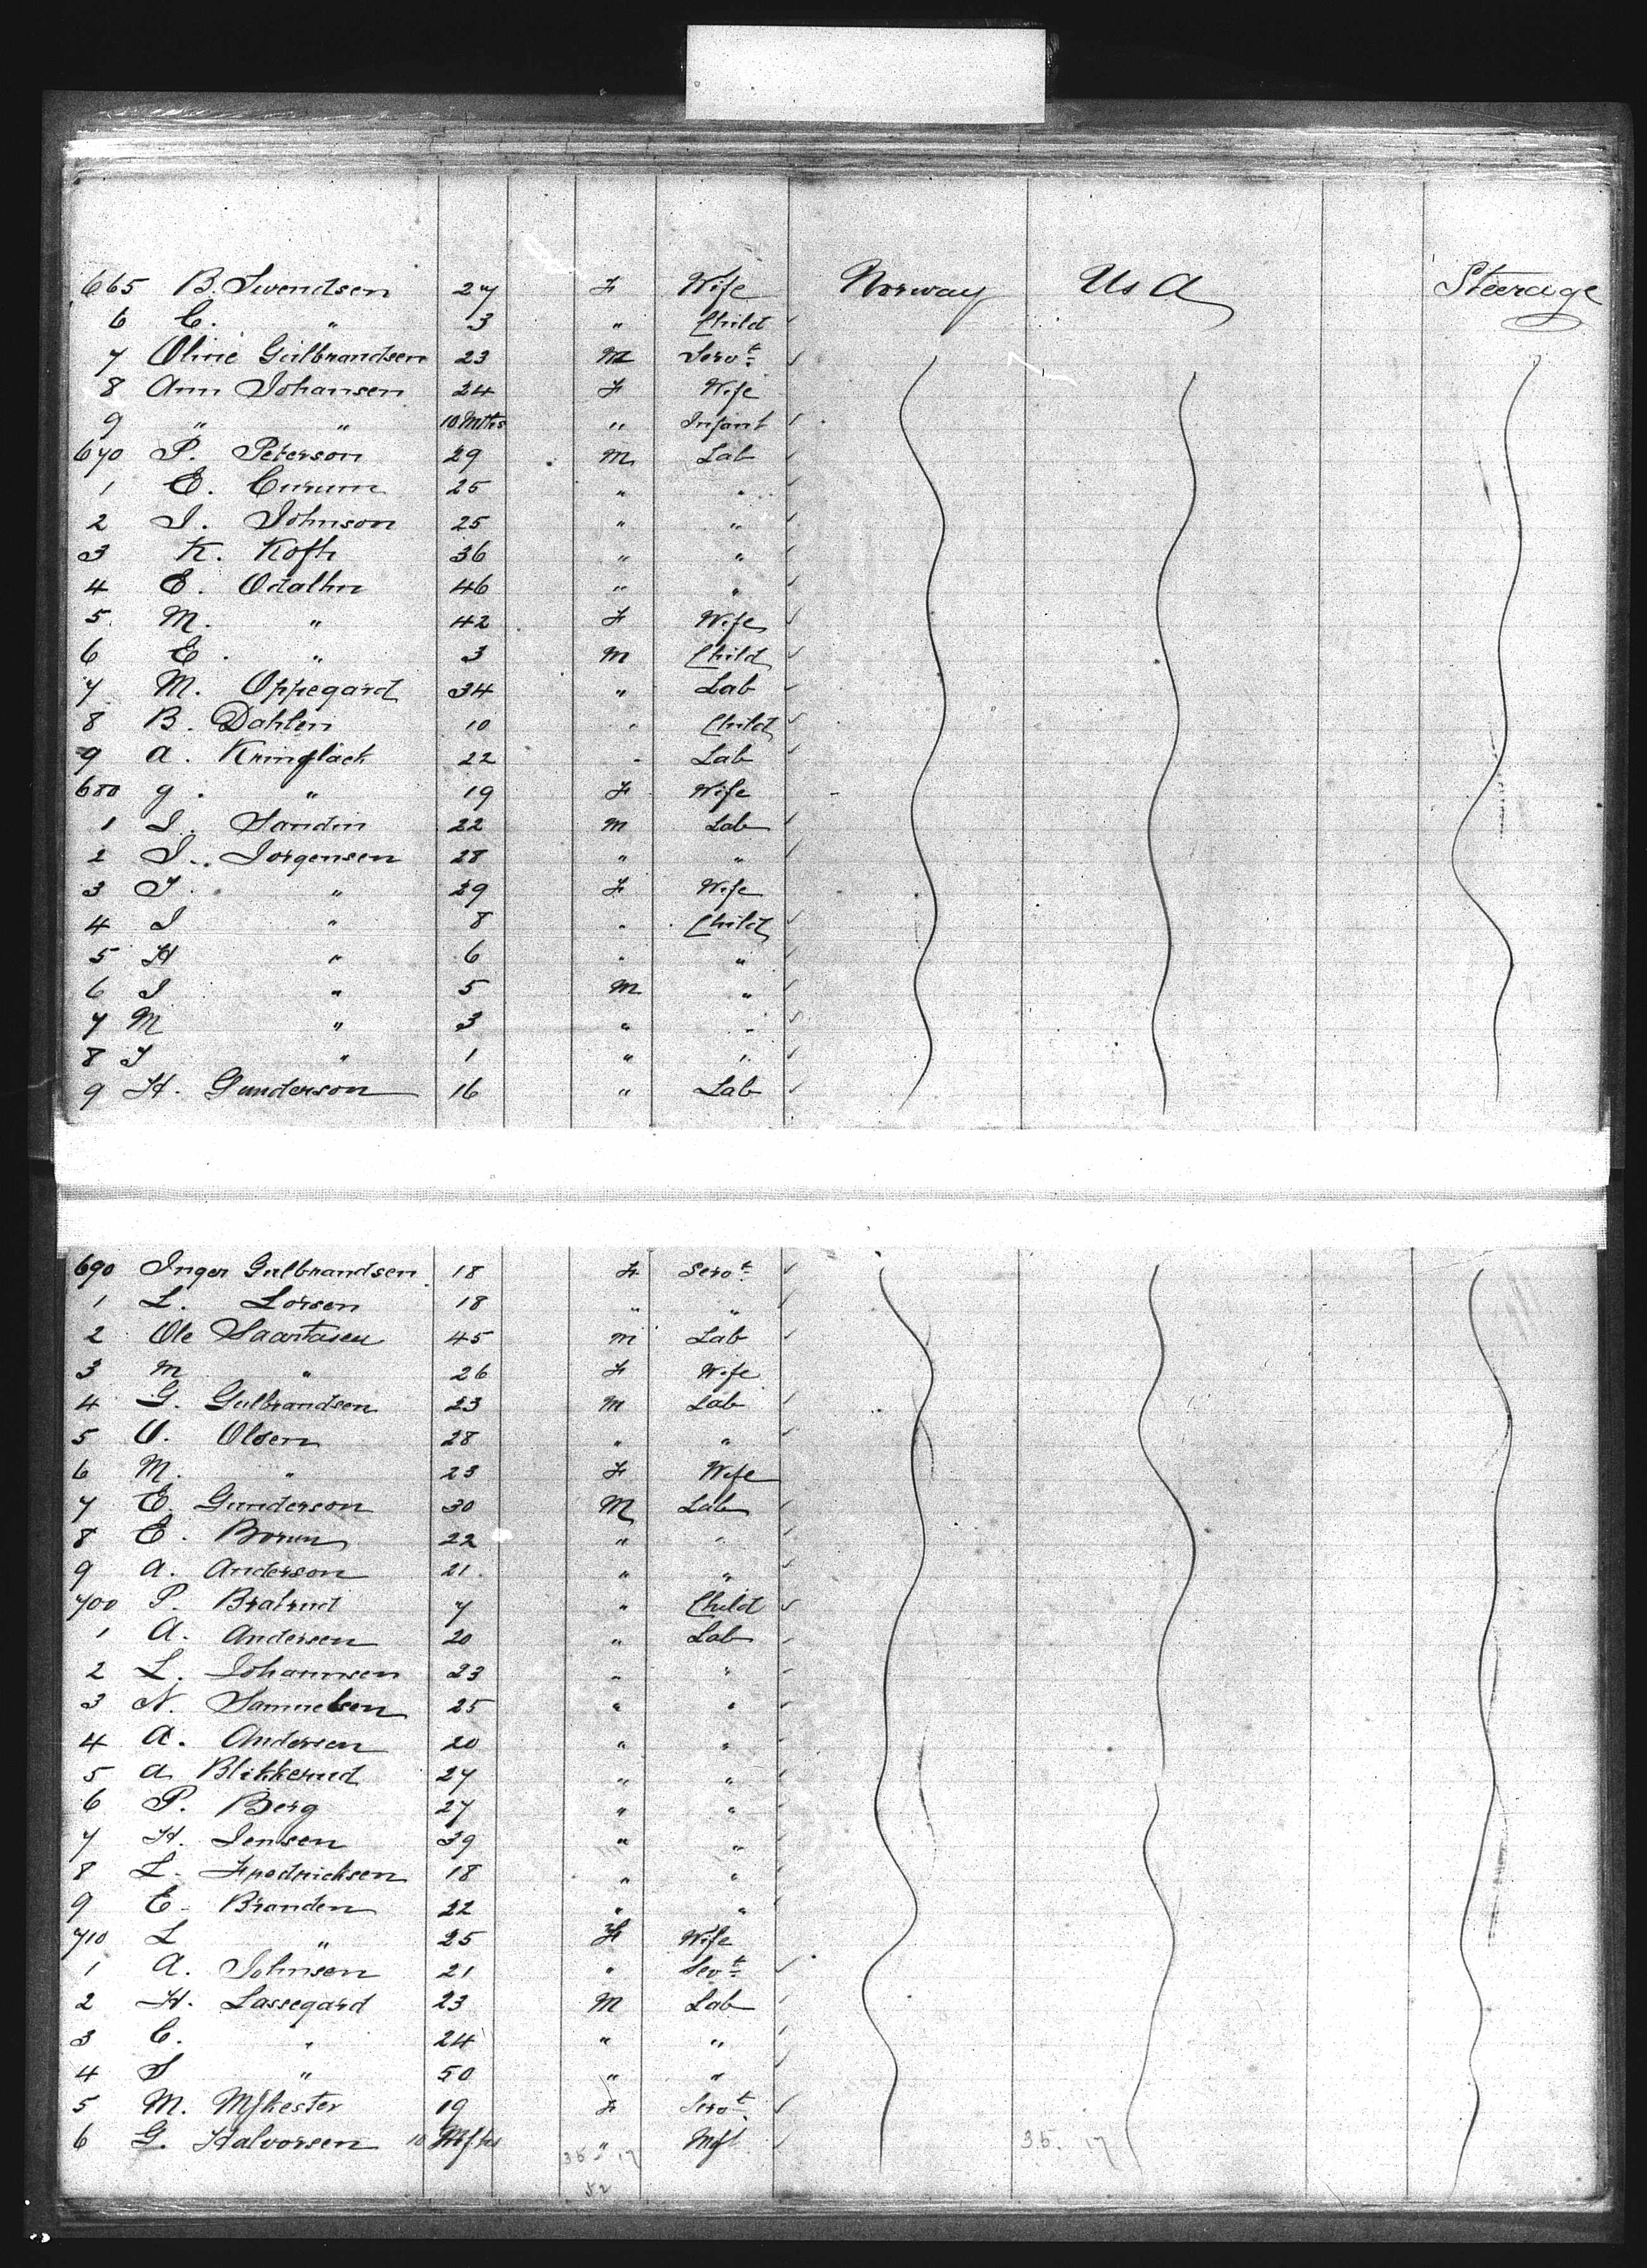 665 B. Swendsen 27 F Wife Norway Us A Steerage
6 C. " 3 " Child
7 Oline Gulbrandsen 23 M Servt
8 Ann Johansen 24 F Wife
9 " " 10 Mths " Infant
670 P. Peterson 29 M Lab
1 E. 25 " "
2 J. Johnson 25 " "
3 K. Koft 36 " "
4 E. Odalhn 46 " "
5 M. " 42 F Wife
6 E. " 3 M Child
7 M. Oppegard 34 " Lab
8 B. Dahlen 10 " Child
9 A. Kringlack 22 " Lab
680 G. " 19 F Wife
1 J. Sandin 22 M Lab
2 J. Jorgensen 28 " "
3 J. " 29 F Wife
4 J " 8 " Child
5 H " 6 " "
6 J " 5 M "
7 M " 3 " "
8 J " 1 " "
9 H. Gunderson 16 " Lab
690 Inger Gulbrandsen 18 F Servt
1 L. Lorsen 18 " "
2 Ole 45 M Lab
3 M " 26 F Wife
4 G. Gulbrandsen 23 M Lab
5 O. Olsen 28 " "
6 M. " 23 F Wife
7 E. Gunderson 30 M Lab
8 E. Borun 22 " "
9 A. Anderson 21 " "
700 P. Bratrud 7 " Child
1 A. Andersen 20 " Lab
2 L. Johannsen 23 " "
3 N. Samuelsen 25 " "
4 A. Andersen 20 " "
5 A Blikkerud 27 " "
6 P. Berg 27 " "
7 H. Jensen 39 " "
8 L. Fredricksen 18 " "
9 E. Branden 22 " "
710 L " 25 F Wife
1 A. Johnsen 21 " Sevt
2 H. Lassegard 23 M Lab
3 C. " 24 " "
4 S " 50 " "
5 M. 19 F Servt
6 G. Halvorsen 10 Mths "
35 17 35. 17
52